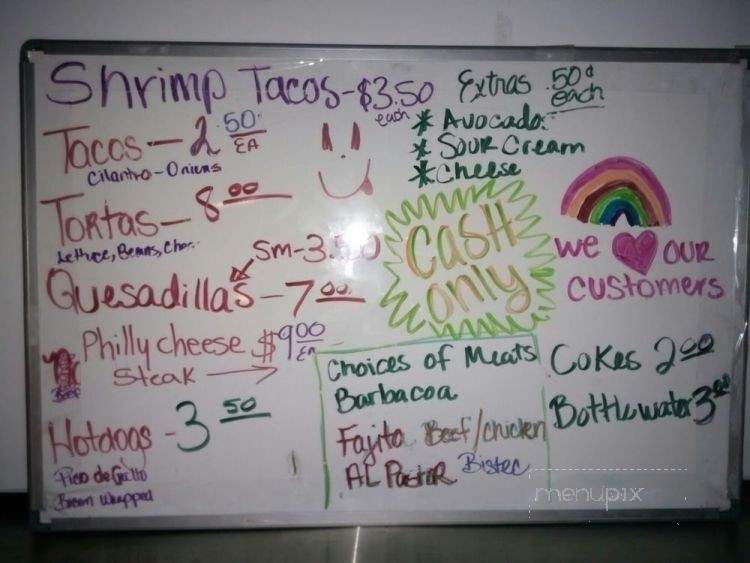 Shrimp Tacos-$3.50 each
Extras 50¢ each
* Avocado
* Sour Cream
* Cheese
Tacos-2.50 EA
Cilantro-Onions
Tortas-8.00
Lettuce, Beans,
Sm-3.50
Quesadillas-7.00
Cash only
we ❤ our customers
Philly cheese steak → $9.00 EA
Beef
Hotdogs-3.50
Pico de Gallo
Bacon Wrapped
Choices of Meats
Barbacoa
Fajita Beef/chicken
AL Pastor Bistec
Cokes 2.00
Bottle water 3.00
menupix